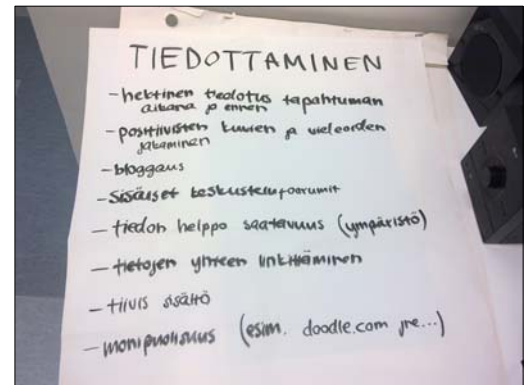 TIEDOTTAMINEN
- hektinen tiedotus tapahtuman
aikana ja ennen
- positiivisten kuvien ja videoiden
jakaminen
- bloggaus
- sisäiset keskustelufoorumit
- tiedon helppo saatavuus (ympäristö)
- tietojen yhteen linkittäminen
- tiivis sisältö
- monipuolisuus (esim. doodle.com jne...)